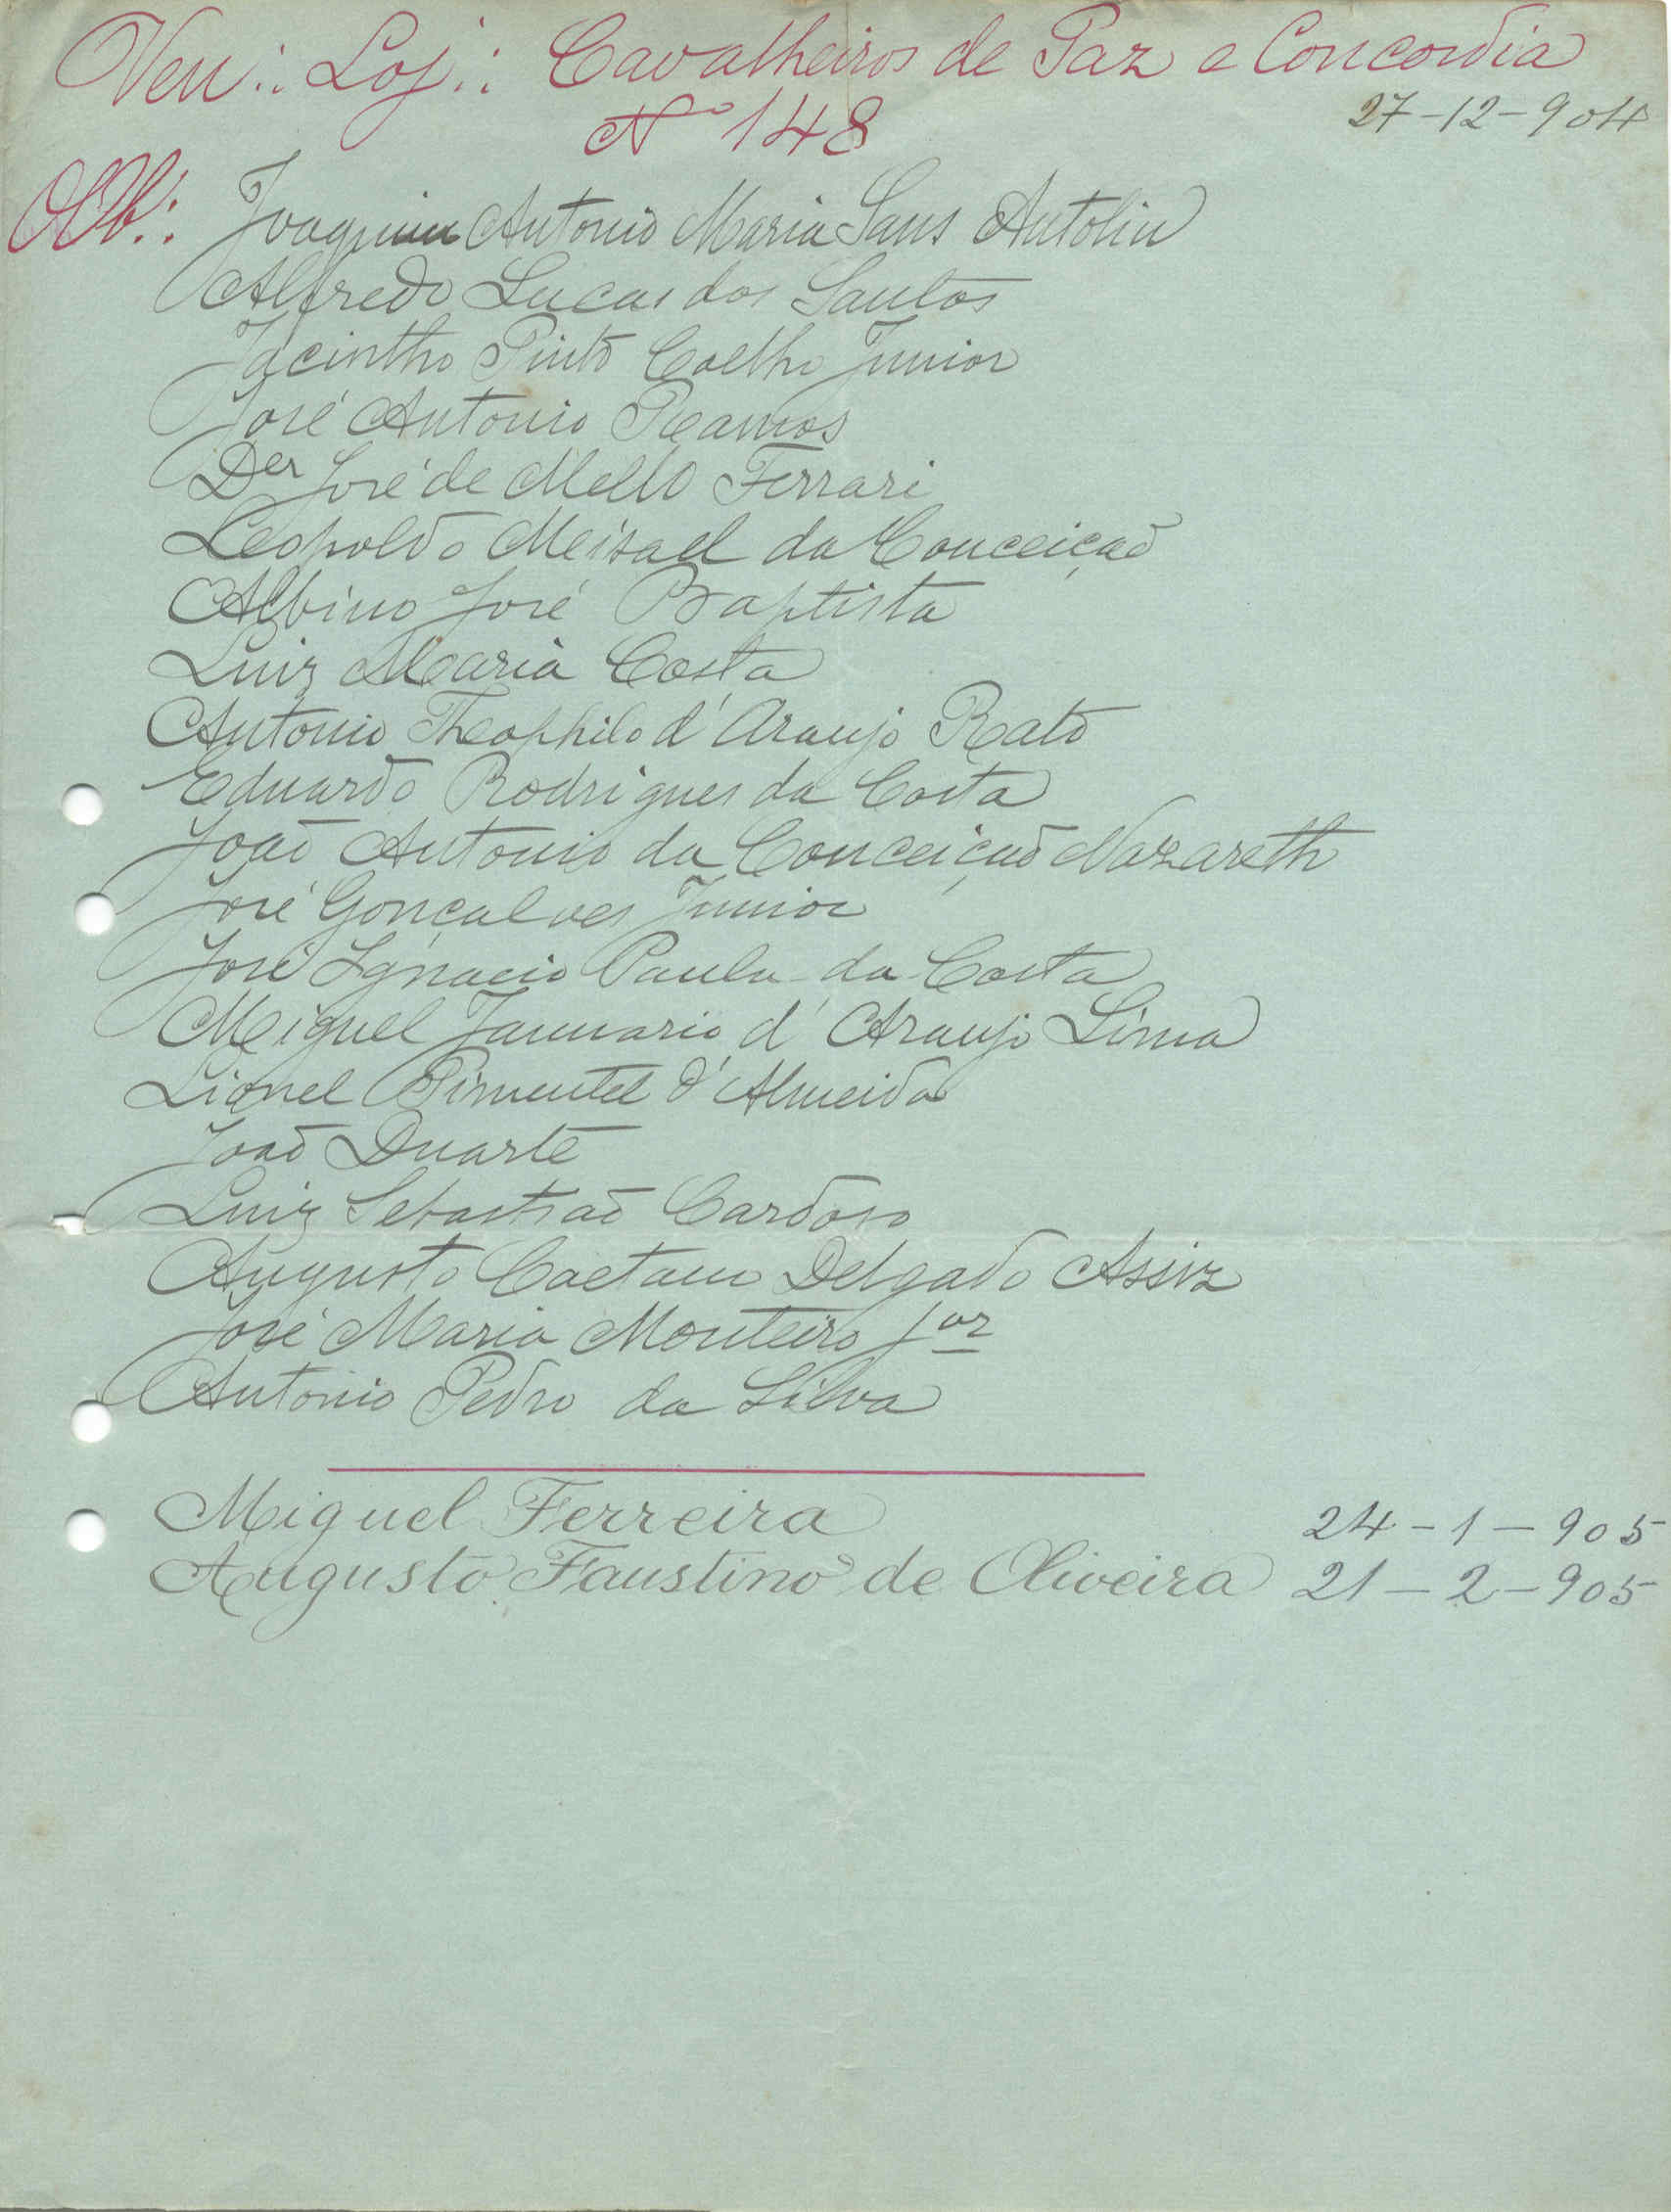 Ven∴ Loj∴ Cavalheiros de Paz e Concordia
Nº 148
27-12-904
Obb∴ Joaquim Antonio Maria Sans Antolin
Alfredo Lucas dos Santos
Jacintho Pinto Coelho Junior
José Antonio Ramos
José de Mello Ferrari
Leopoldo Meisael da Conceição
Albino José Baptista
Luiz Maria Costa
Antonio Theophilo d'Araujo Rato
Eduardo Rodrigues da Costa
João Antonio da Conceição Nazareth
José Gonçalves Junior
José Ignacio Paula da Costa
Miguel Januario d'Araujo Lima
Lionel Pimentel d'Almeida
João Duarte
Luiz Sebastião Cardoso
Augusto Caetano Delgado Assiz
José Maria Monteiro Jor
Antonio Pedro da Silva
Miguel Ferreira 24-1-905
Augusto Faustino de Oliveira 21-2-905